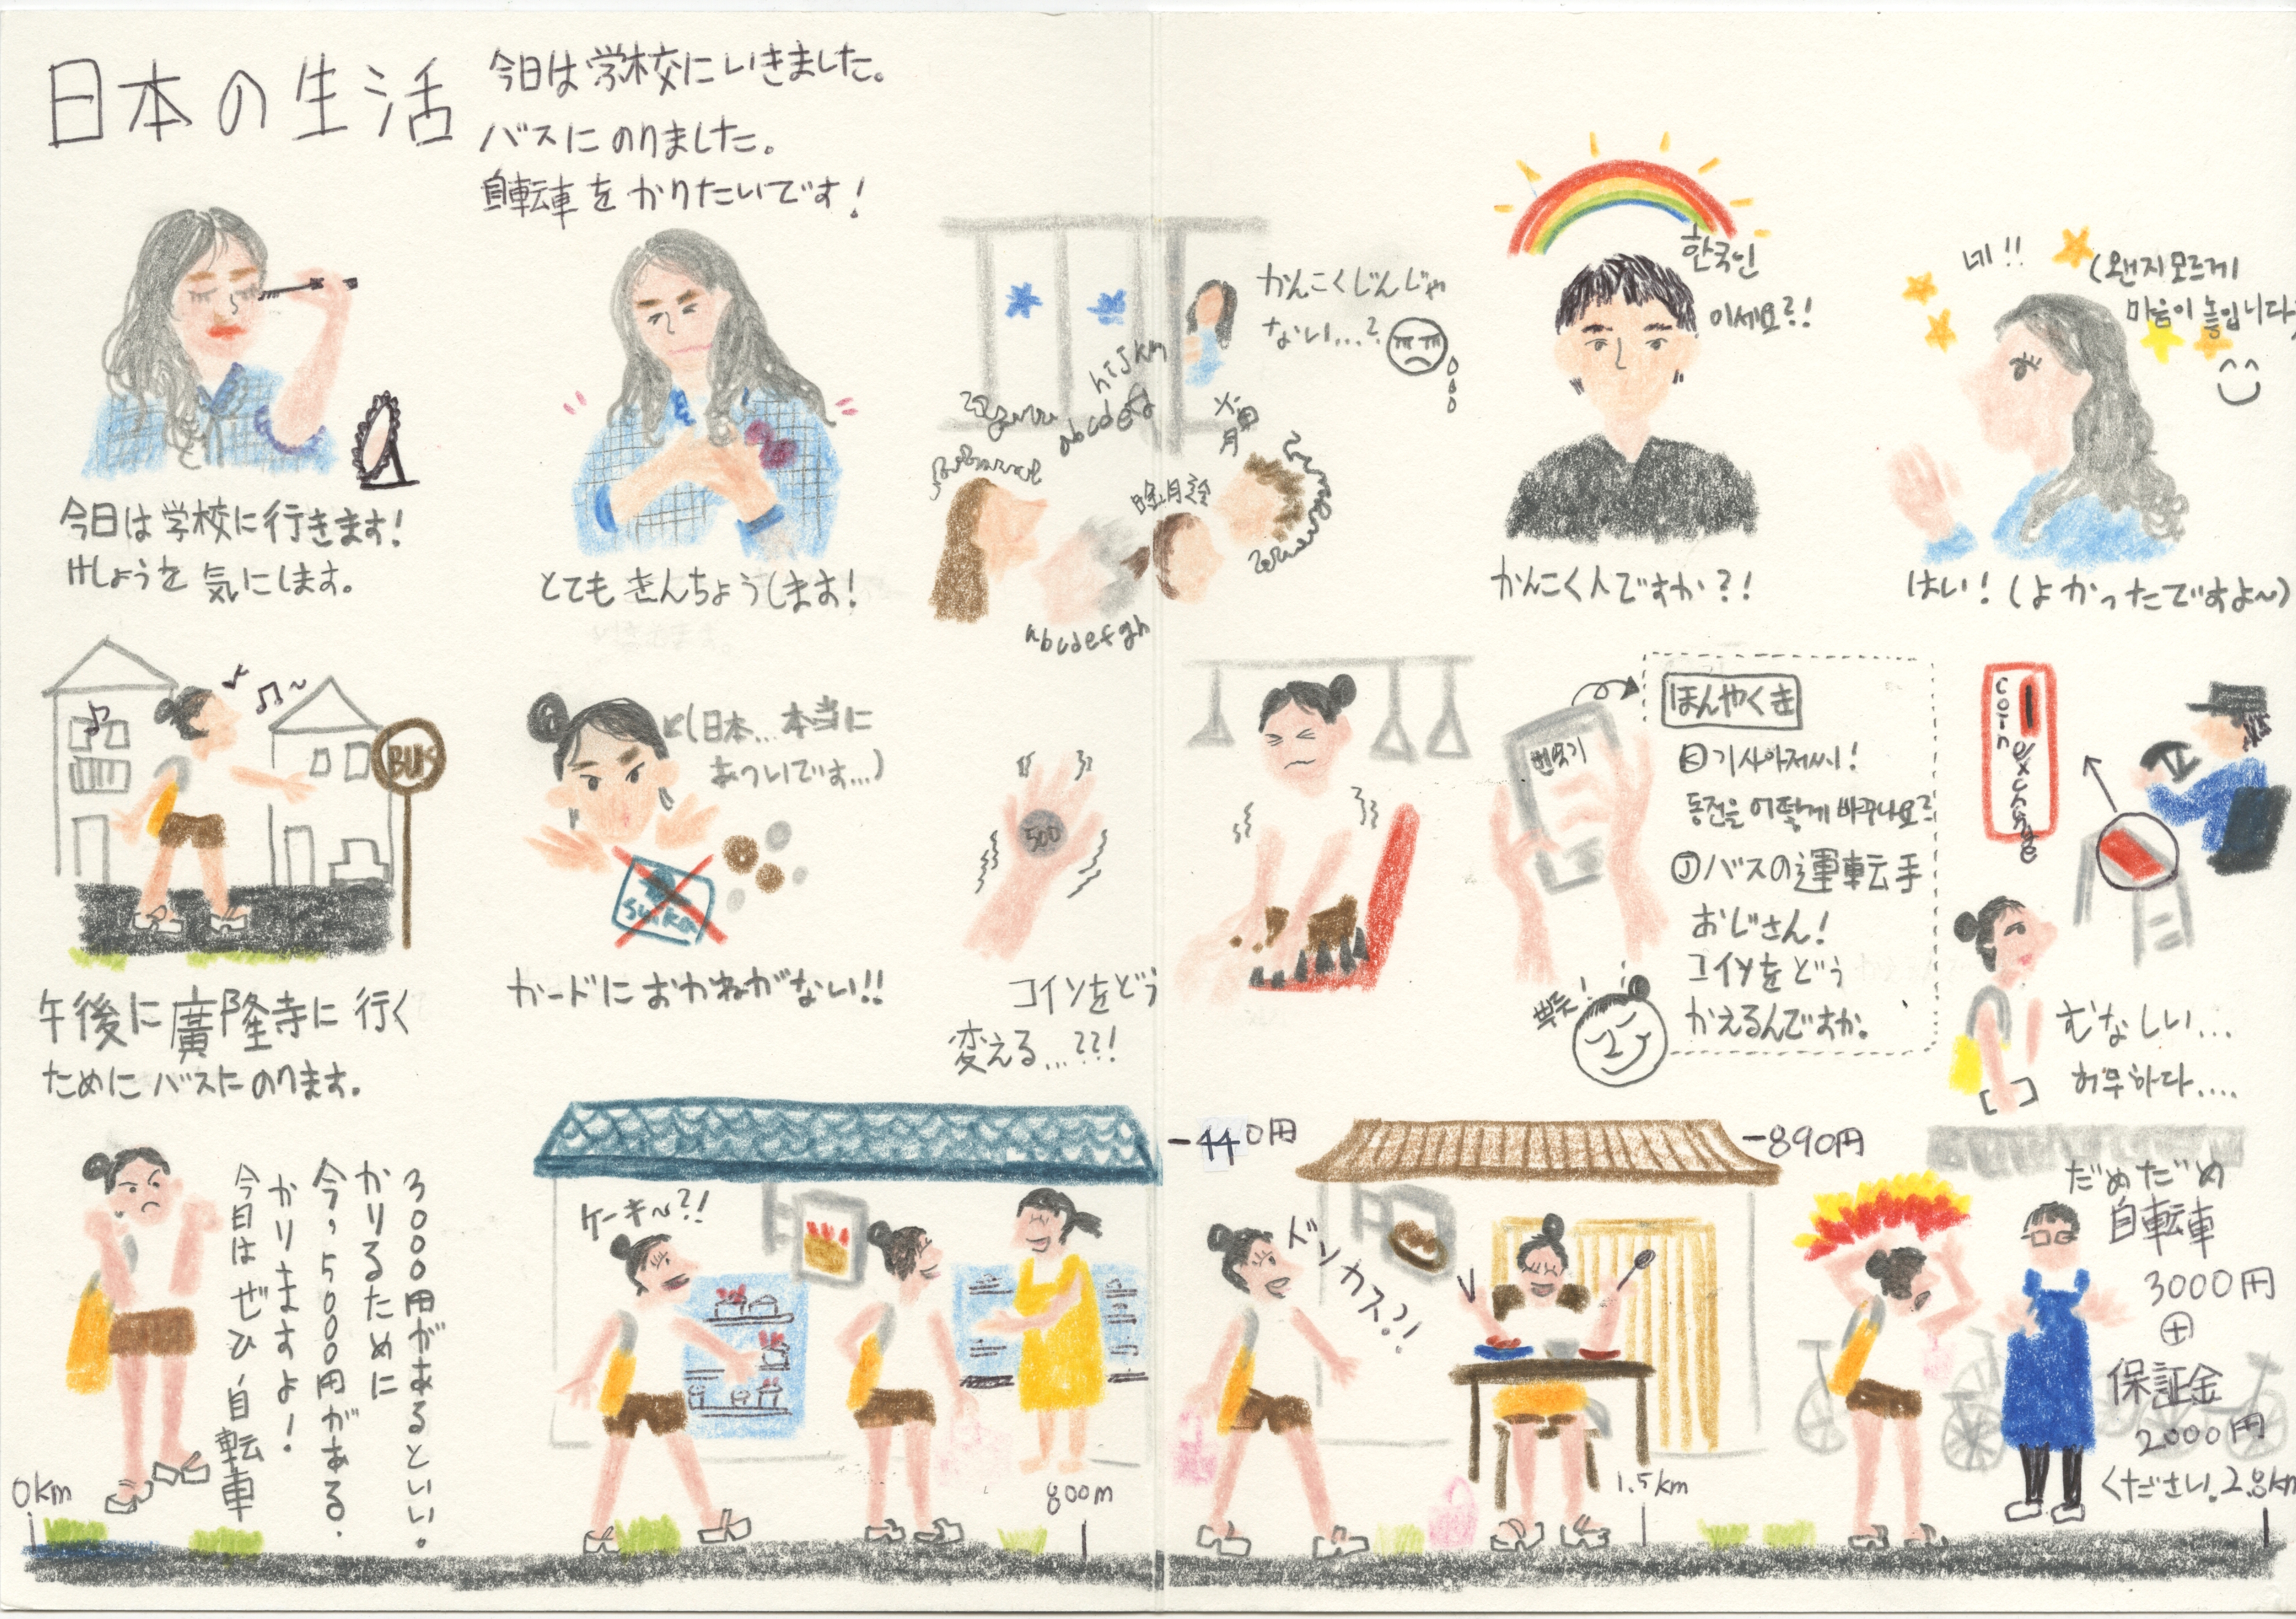 日本の生活
今日は学校にいきました。
バスにのりました。
自転車をかりたいです！
今日は学校に行きます！
けしょうを気にします。
とてもきんちょうします！
hijkm
abcdefg
abcdefgh
かんこくじんじゃ
ない…?
한국인
이세요?!
かんこく人ですか?!
네!!
(왠지모르게
마음이 놓입니다)
はい！(よかったですよ~)
BUS
午後に廣隆寺に行く
ためにバスにのります。
(日本…本当に
あついです…)
suika
カードにおかねがない!!
500
コインをどう
変える…??!
번역기
ほんやくき
Ⓚ기사아저씨!
동전을 어떻게 바꾸나요?
Ⓙバスの運転手
おじさん！
コインをどう
かえるんですか。
뿌듯!
coin exchange
むなしい…
허무하다….
0km
3000円があるといい。
かりるために
今、5000円がある.
かりますよ！
今日はぜひ自転車
ケーキ~?!
800m
-440円
ドンカス?!
-890円
1.5km
だめだめ
自転車
3000円
⊕
保証金
2000円
ください.
2.8km